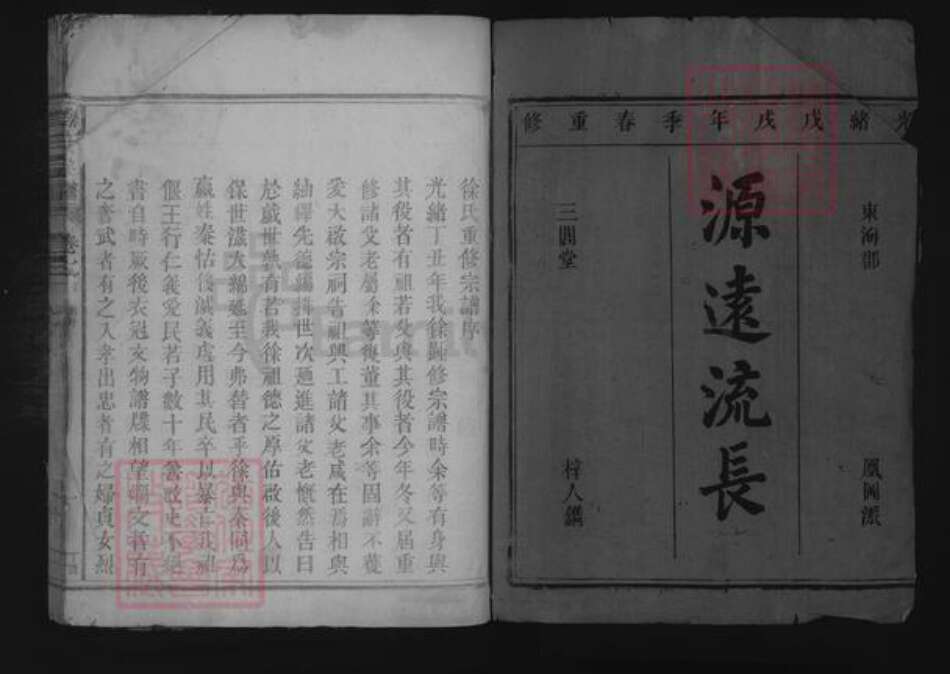 光緒戊戌年季春重修
東海郡 鳳岡派
源遠流長
三閣堂 梓人鐫
徐氏重修宗譜序
光緒丁丑年我徐嗣修宗譜時余等有身與
其役者有祖若父與其役者今年冬又屆重
修諸父老屬余等復董其事余等固辭不獲
爰大啟宗祠告祖興工諸父老咸在焉相與
紬繹先德編輯世次迺進諸父老慨然告曰
於戲世孰有若我徐祖德之厚佑啟後人以
保世滋大綿延至今弗替者乎徐與秦同為
嬴姓秦怙侈滅義虐用其民卒以暴亡我祖
偃王行仁義愛民若子數十年書
書自時厥後衣冠文物譜牒相望文者有
之奮武者有之入孝出忠者有之婦貞女烈